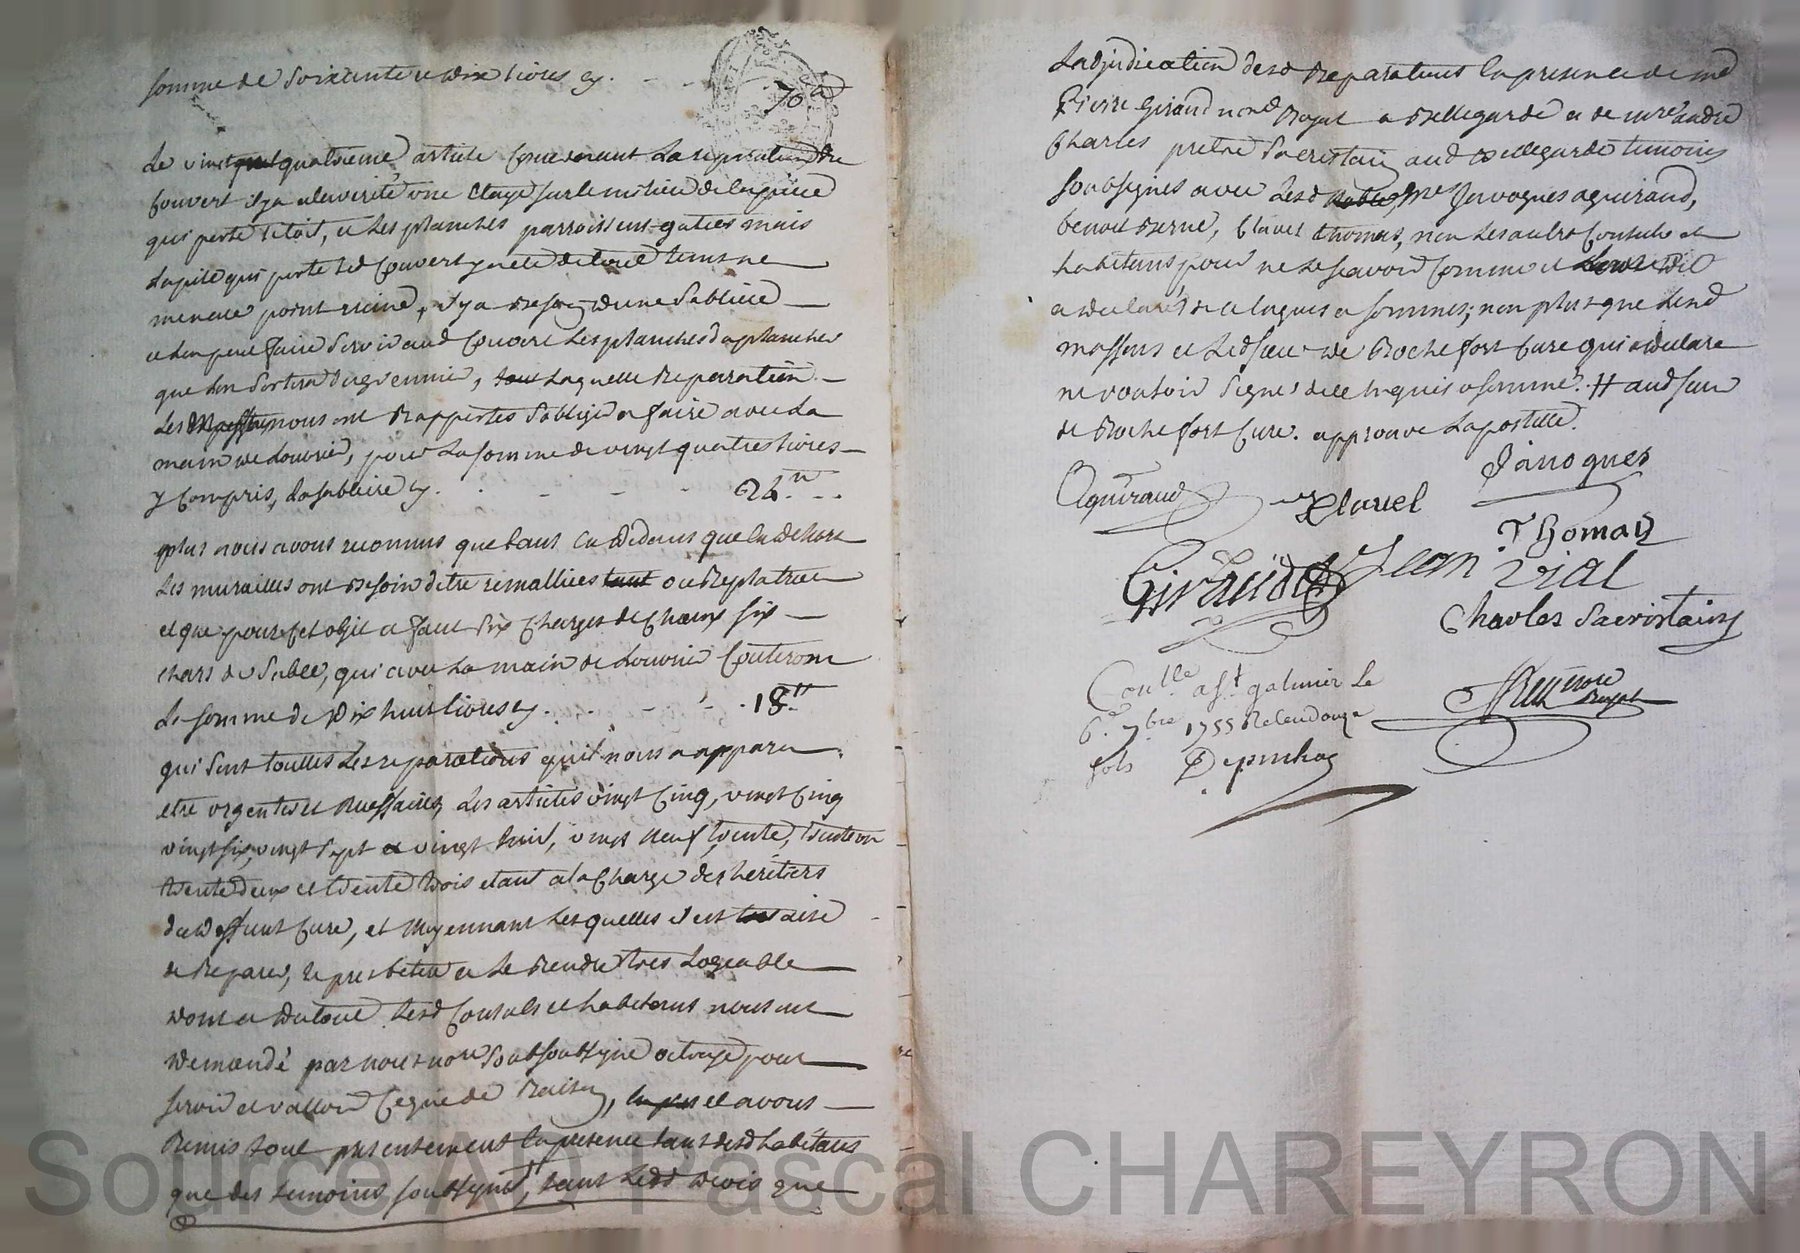 somme de soixante et dix livres cy. 70ᵗᵗ
Le vingt quatrieme article concernant la reparation du
couvert il y a a la verité une etaye sur le milieu de la piece
qui porte le toit, et les planches parroissent gatées mais
la pile qui porte led couvert
menace point ruine, il y a besoin d'une sabliere
et l'on peut faire servir aud couvert les planches
que l'on sortira du grennier, laquelle reparation
les nous ont rapportés s'obliger a faire avec la
main de louvrier, pour la somme de vingt quatres livres
y compris la sabliere cy. 24.ᵗᵗ
plus nous avons reconnus que tant en dedans que en dehors
les murailles ont besoin d'etre remalliées ou replatrées
et que pour cet objet il faut six charges de chaux six
chars de sable, qui avec la main de louvrier couteront
la somme de dix huit livres cy. 18ᵗᵗ
qui sont touttes les reparations quil nous a apparu
etre urgentes et necessaires, les articles vingt cinq, vingt cinq
vingt six, vingt sept et vingt huit, vingt neuf, trente, trente un
trente deux et trente trois etant a la charge des heritiers
du deffunt curé, et moyennant lesquelles il est aisé
de reparer le presbitere et le rendre tres logeable
dont et du tout lesd consuls et habitans nous ont
demandé par nous nore soubsigné octroyé pour
servir et valloir ce que de raison, et avons
remis tout presentement en presence tant desd habitans
que des temoins soussignés, tant lesd trois que
Ladjudication desd reparations en presence de me
Pierre Giraud nore royal a Bellegarde et de mre andré
Charles pretre sacristain aud Bellegarde temoins
soubsignés avec lesd mes Javogues aguiraud,
benoit berne, clavel thomas, non les autres consuls et
habitans pour ne le scavoir comme
a declarés de ce enquis et sommés; non plus que lesd
massons et led sieur de Rochefort curé qui a declaré
ne vouloir signer de ce enquis et sommé. # aud sieur
de Rochefort curé. approuvé la postille.
Aguiraud Clavel Javogues
Thomas
Giraud Jean Vial
Charles Sacristain
Coullé a St galmier le
6e 7bre 1755 Receu douze
sols
Royal
Source AD Pascal CHAREYRON